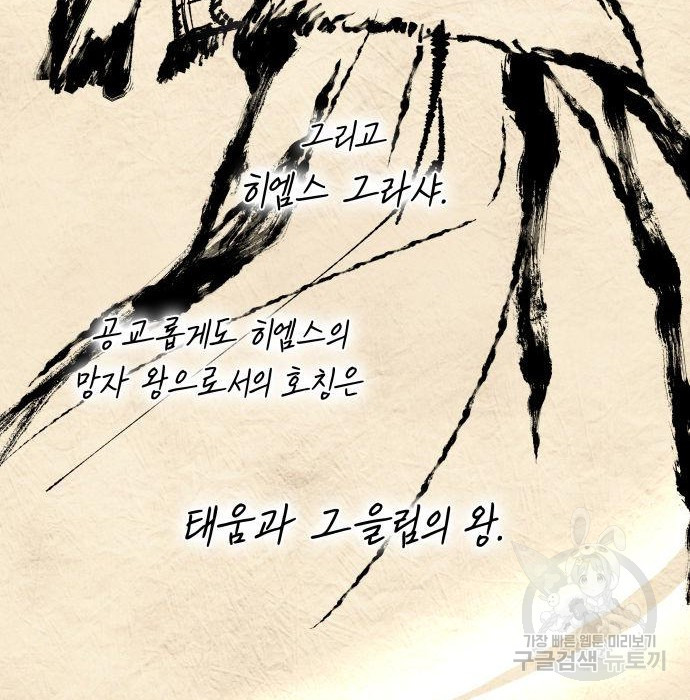 그리고
히엠스 그라샤.
공교롭게도 히엠스의
망자 왕으로서의 호칭은
태움과 그을림의 왕.
가장 빠른 웹툰 미리보기
구글검색 뉴토끼